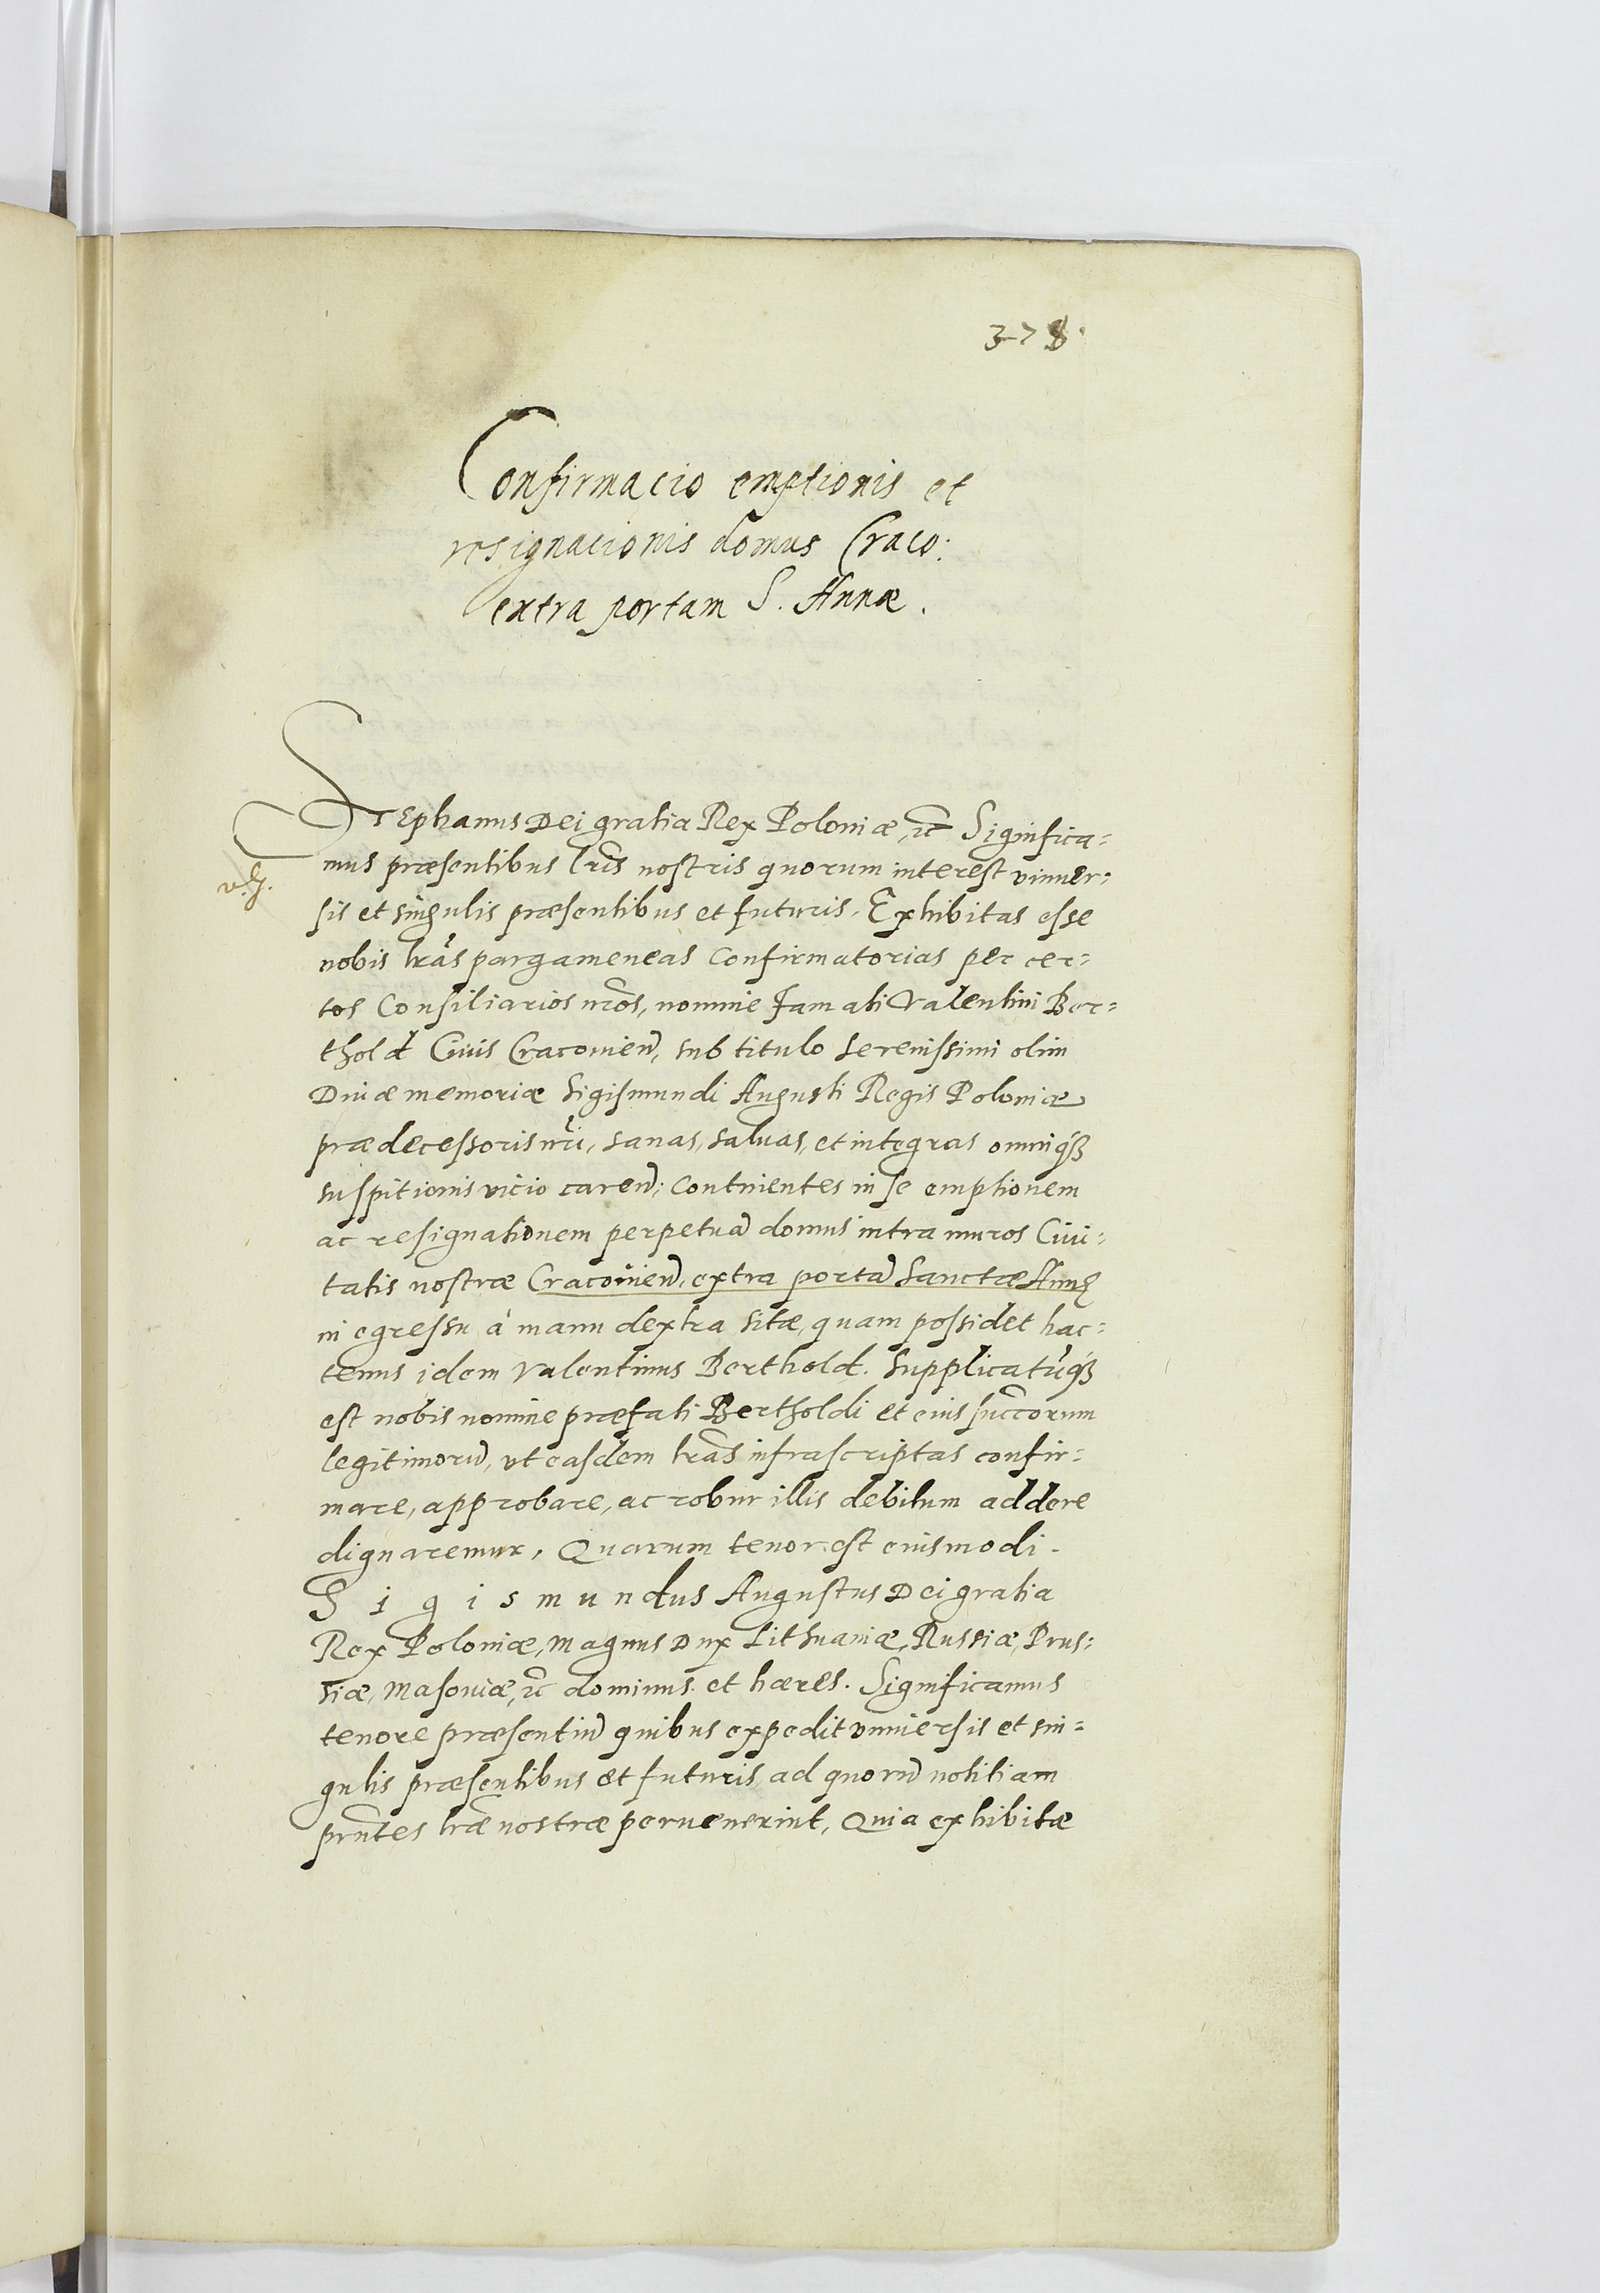 378.
Confirmacio emptionis et
resignacionis domus Craco:
extra portam S. Annæ.
Stephanus Dei gratia Rex Poloniæ, etc̄ Significa-
mus præsentibus l̃ris nostris quorum interest vniuer-
sis et singulis præsentibus et futuris. Exhibitas esse
nobis l̃ras pargameneas Confirmatorias per cer-
tos Consiliarios nr̃os, nomine famati Valentini Ber-
thold Ciuis Cracouien̄, sub titulo Serenissimi olim
Diuæ memoriæ Sigismundi Augusti Regis Poloniæ
prædecessoris nr̃i, sanas, saluas, et integras omniq́ꝫ
suspitionis vicio caren̄; Continentes in se emptionem
ac resignationem perpetuā domus intra muros Ciui-
tatis nostræ Cracouien̄, extra portā Sanctæ Annę
in egressu à manu dextra sitæ, quam possidet hac-
tenus idem Valentinus Berthold. Supplicatũq́ꝫ
est nobis nomine præfati Bertholdi et eius succ̃orum
legitimorū, vt easdem l̃ras infrascriptas confir-
mare, approbare, ac robur illis debitum addere
dignaremur, Quarum tenor est eiusmodi.
Sigismundus Augustus Dei gratia
Rex Poloniæ, Magnus Dux Lithuaniæ, Russiæ, Prus-
siæ, Masouiæ, etc̄ dominus et hæres. Significamus
tenore præsentiū quibus expedit vniuersis et sin-
gulis præsentibus et futuris, ad quorū notitiam
prñtes l̃ræ nostræ peruenerint, Quia exhibitæ